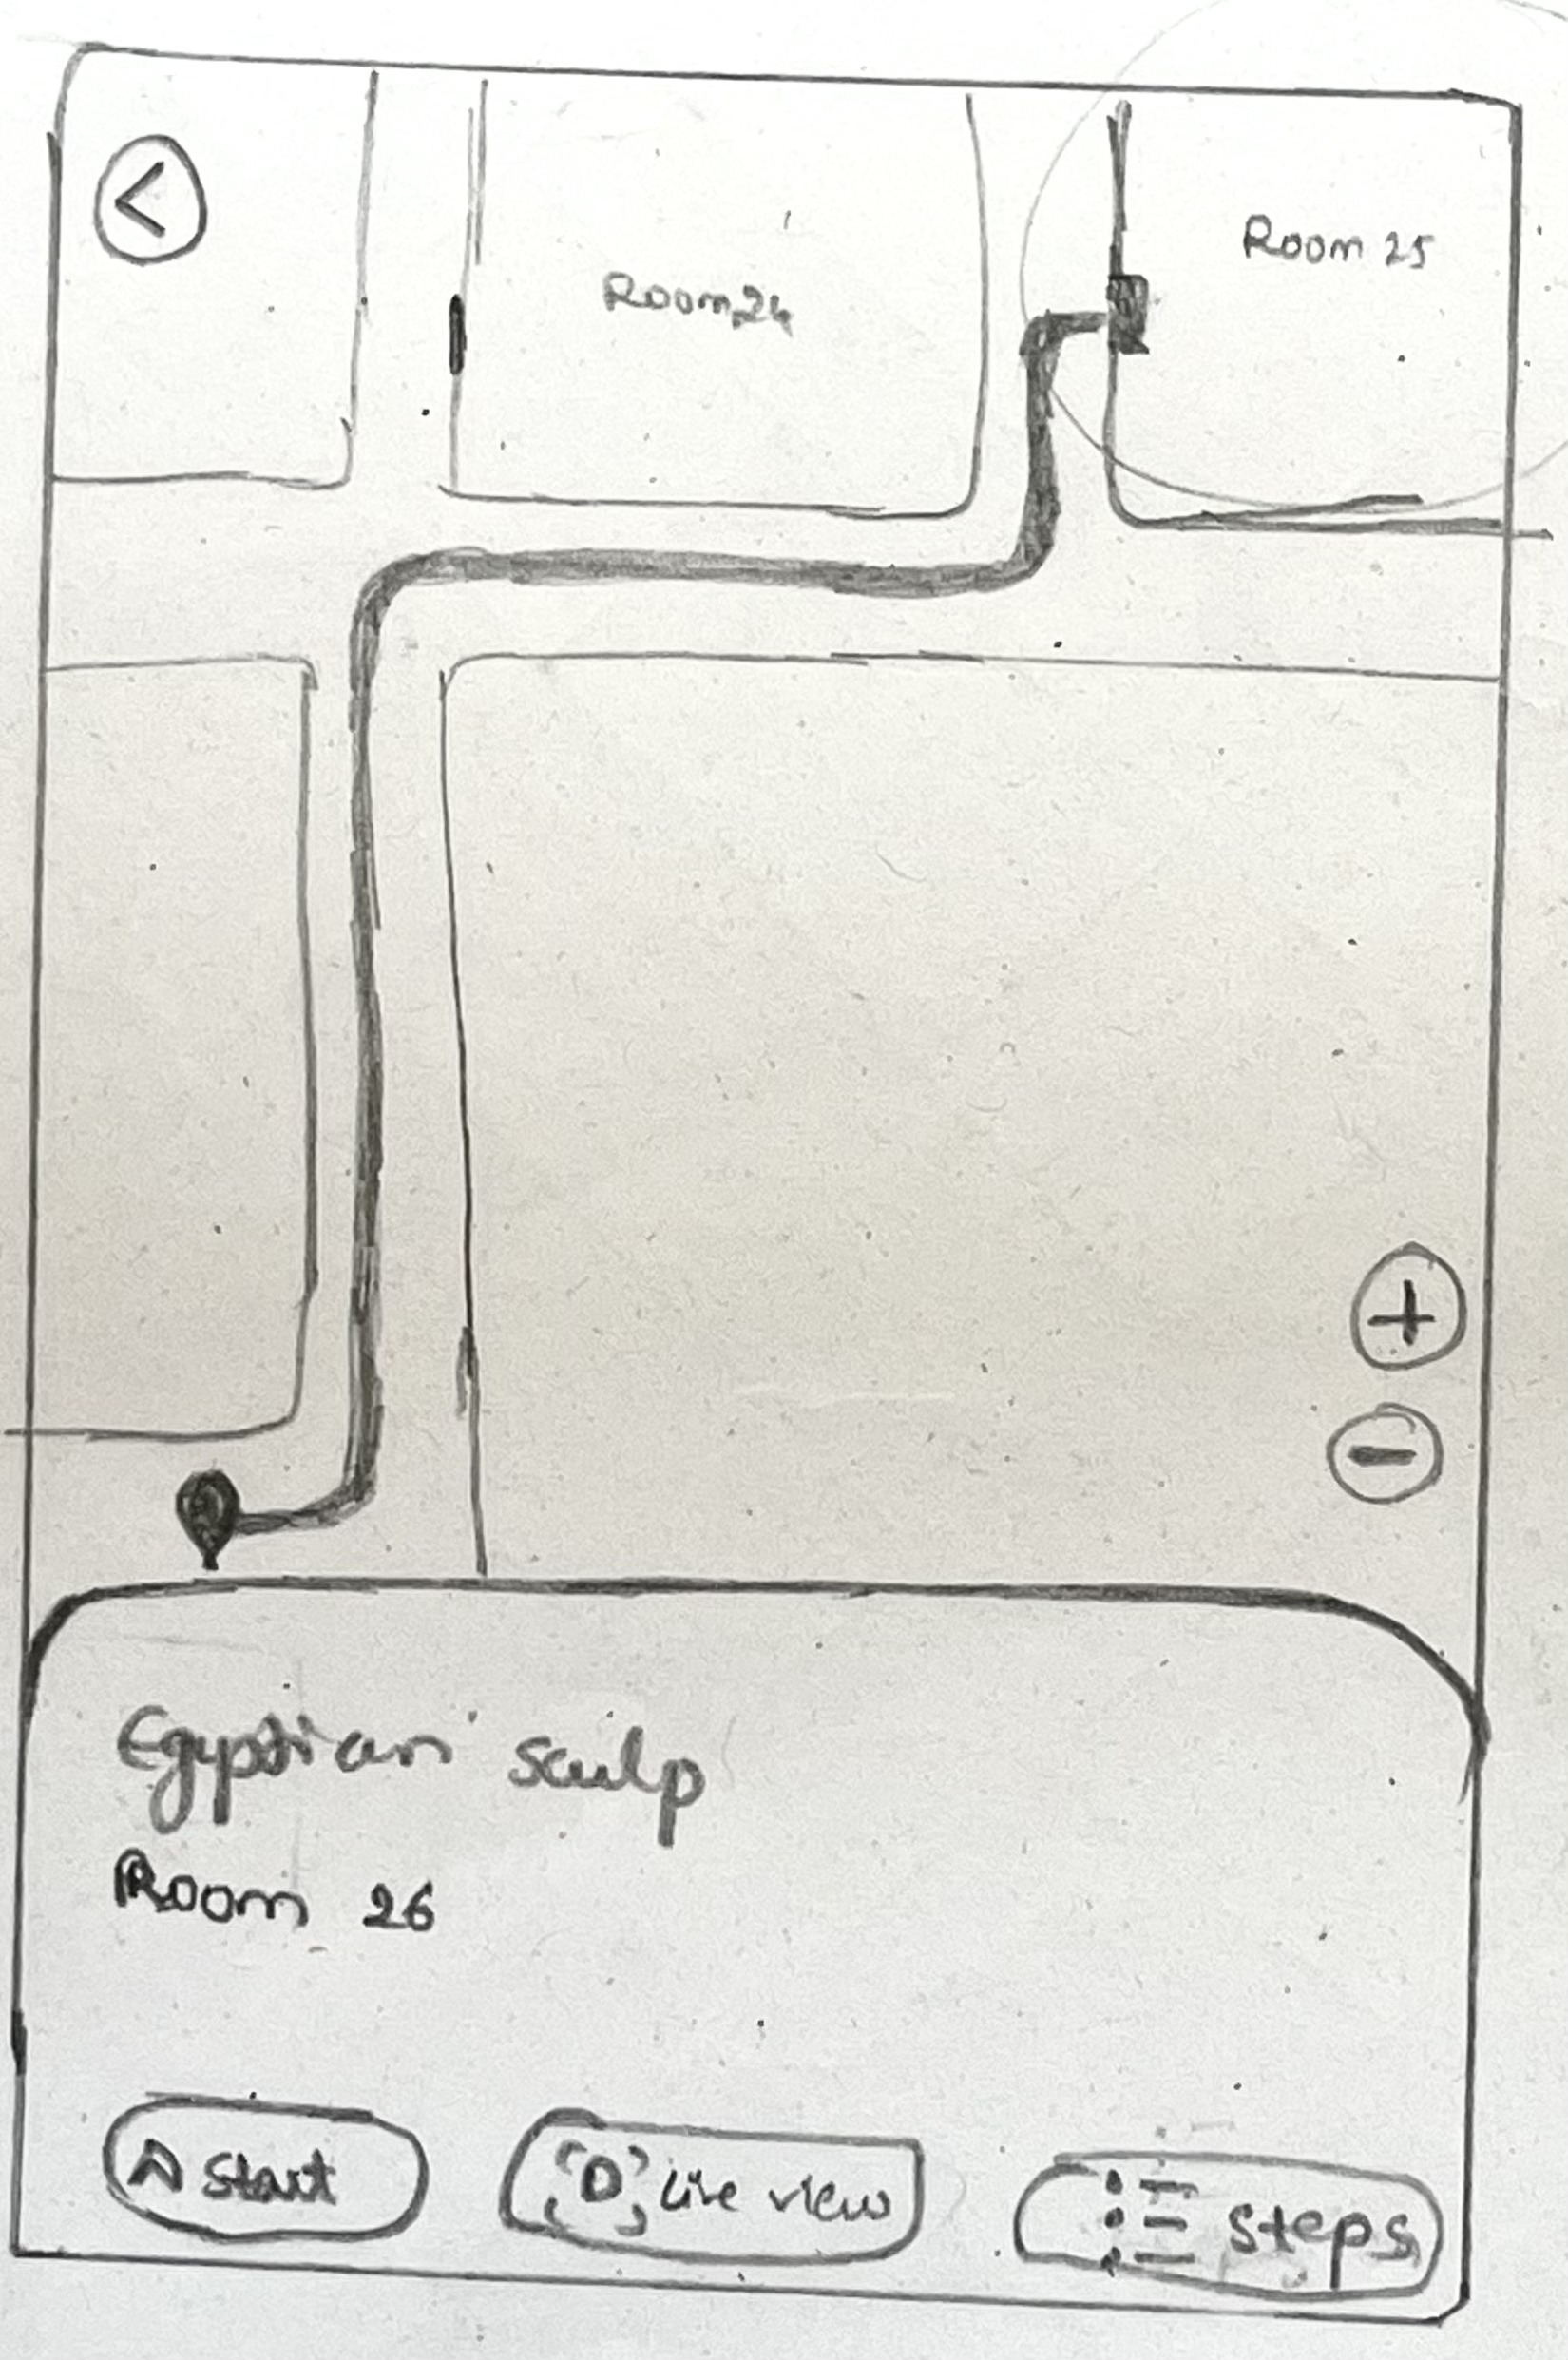 Room 25
Room 24
Egyptian sculp
Room 26
Start
Live view
Steps